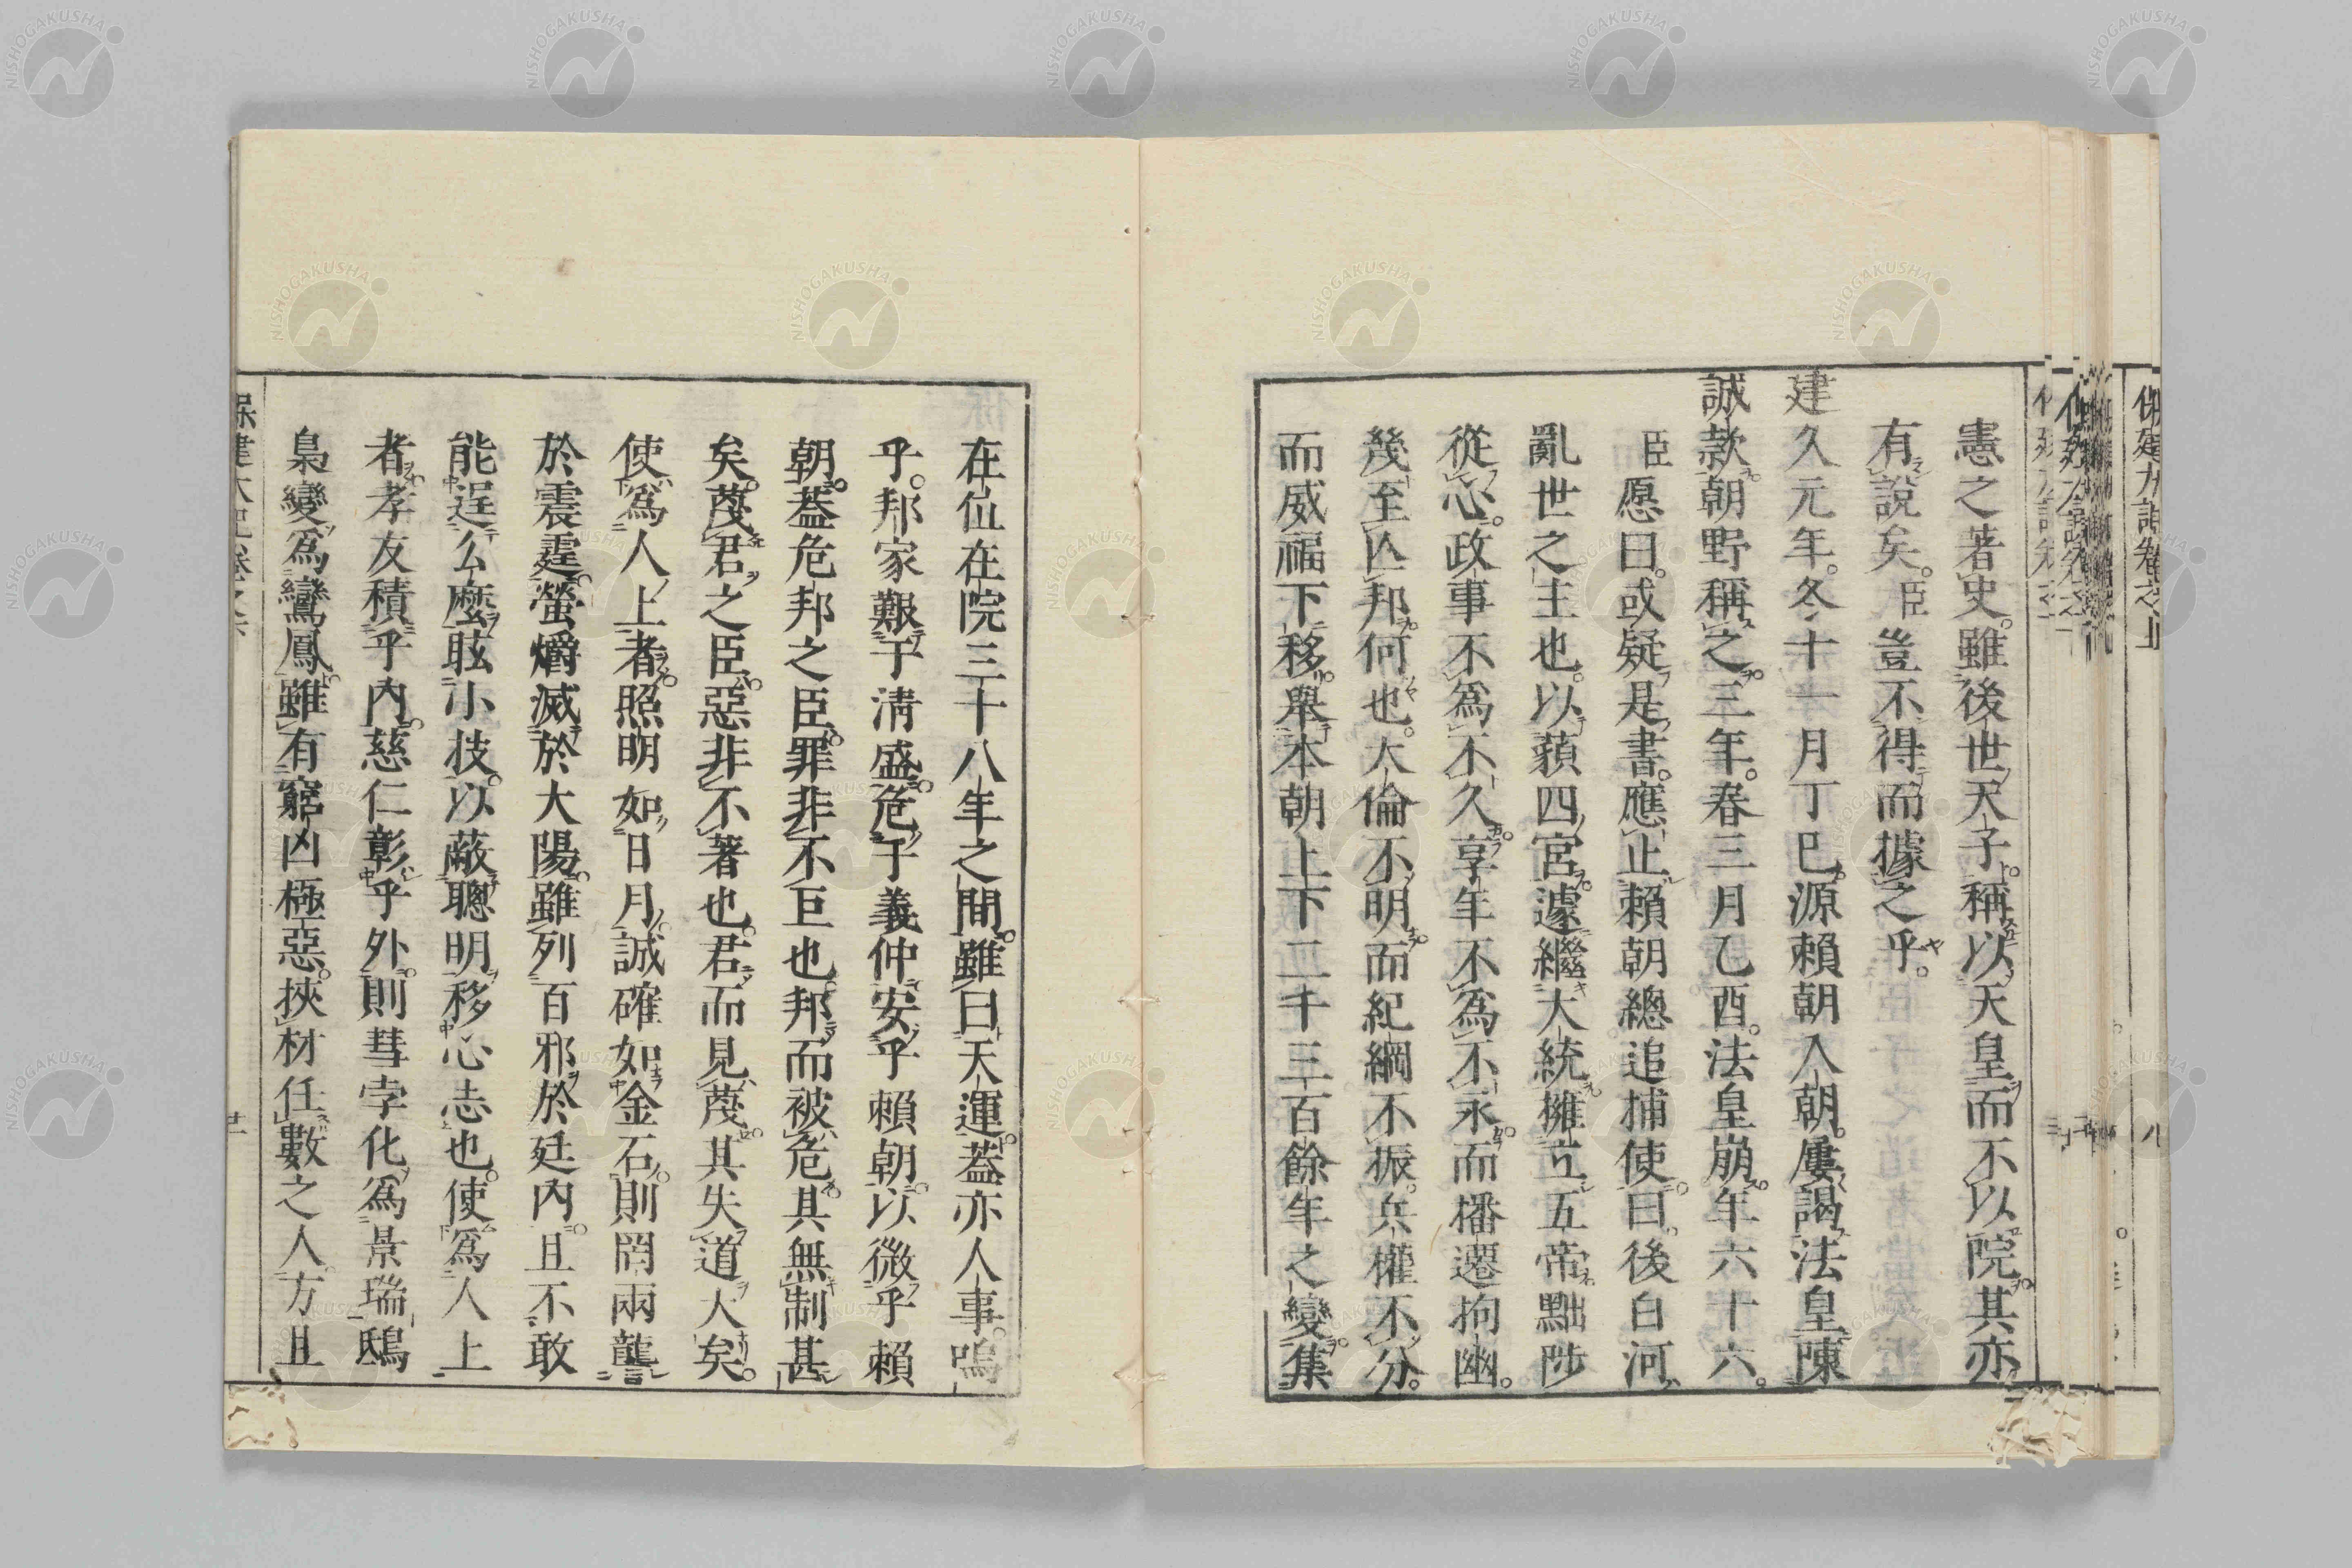 憲之著史。雖後世天子稱以天皇而不以院其亦
有說矣。臣豈不得而據之乎。
建久元年。冬十一月丁巳源賴朝入朝。屢謁法皇陳
誠款。朝野稱之。三年。春三月乙酉。法皇崩。年六十六。
臣愿曰。或疑是書。應止賴朝總追捕使。曰。後白河
亂世之主也。以蘋四宮。遽繼大統。擁立五帝。黜陟
從心。政事不爲不久。享年不爲不永。而播遷拘幽。
幾至亾邦何也。大倫不明。而紀綱不振。兵權不分。
而威福下移。舉本朝上下二千三百餘年之變。集
在位在院三十八年之間。雖曰天運。蓋亦人事。嗚
乎。邦家艱于淸盛。危于義仲。安乎賴朝。以微乎賴
朝。蓋危邦之臣。罪非不巨也。邦而被危。其無制甚
矣。蔑君之臣。惡非不著也。君而見蔑。其失道大矣。
使爲人上者。照明如日月。誠確如金石。則罔兩龍
於震霆。螢爝滅於大陽。雖列百邪於廷內。且不敢
能逞么麼眩小技。以蔽聰明移心志也。使爲人上
者。孝友積乎內。慈仁彰乎外。則彗孛化爲景瑞。鴟
梟變爲鸞鳳。雖有窮凶極惡。挾材任數之人。方且
保建大記卷之下
NISHOGAKUSHA